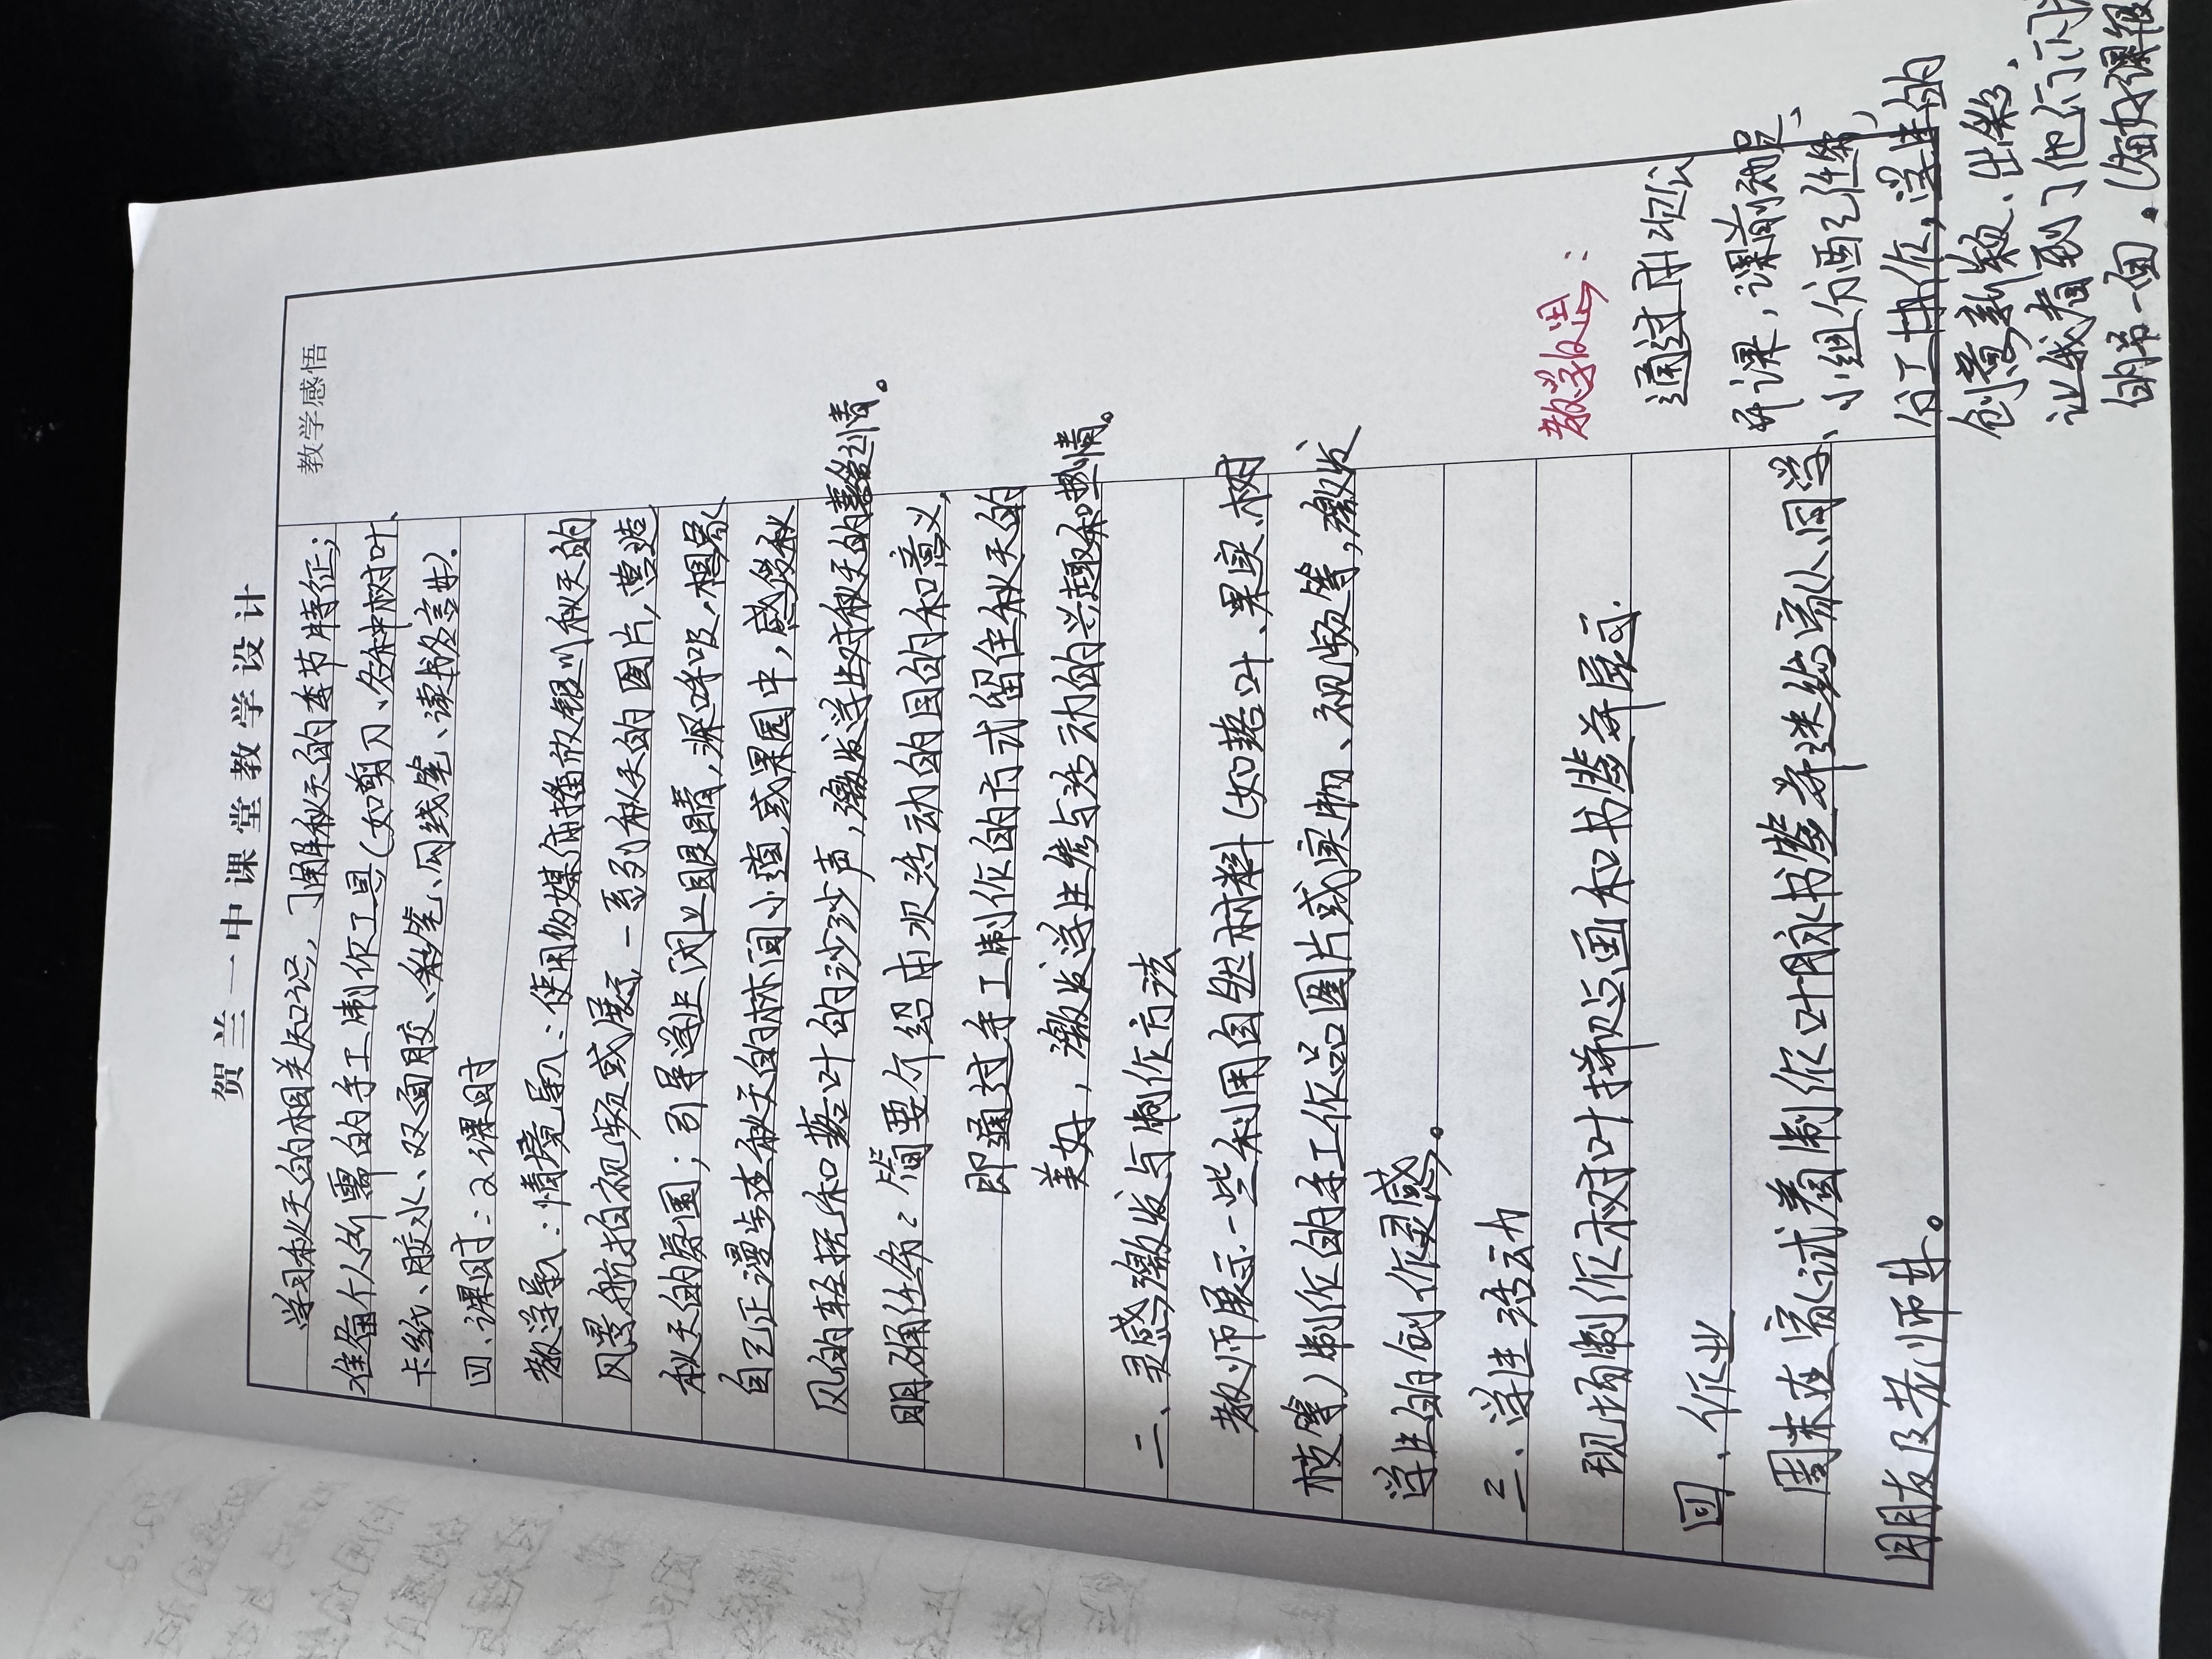 贺兰一中课堂教学设计
教学感悟
学习秋天的相关知识,了解秋天的季节特征;
准备个人所需的手工制作工具(如剪刀、各种树叶、
卡纸、胶水、双面胶、彩笔、勾线笔、读书名言等).
四、课时:2课时
教学导入:情境导入:使用多媒体播放银川秋天的
风景航拍视频或展示一系列秋天的图片,营造
秋天的氛围;引导学生闭上眼睛,深呼吸,想象
自己正漫步在秋天的林间小道或果园中,感受秋
风的轻抚和落叶的沙沙声,激发学生对秋天的喜爱之情。
明确任务:简要介绍本次活动的目的和意义,
即通过手工制作的方式留住秋天的
美好,激发学生参与活动的兴趣和热情。
二、灵感激发与制作方法
教师展示一些利用自然材料(如落叶、果实、树
枝等)制作的手工作品图片或实物、视频等,激发
学生的创作灵感。
三、学生活动
现场制作树叶拼贴画和书签并展示.
四、作业
周末在家试着制作叶脉书签并送给家人、同学、
朋友及老师等。
教学反思:
通过本次公
开课,课前动员、
小组分配任务,
分工协作,学生的
创意新颖、出彩、
让我看到了他们闪光
的另一面。(每好课很